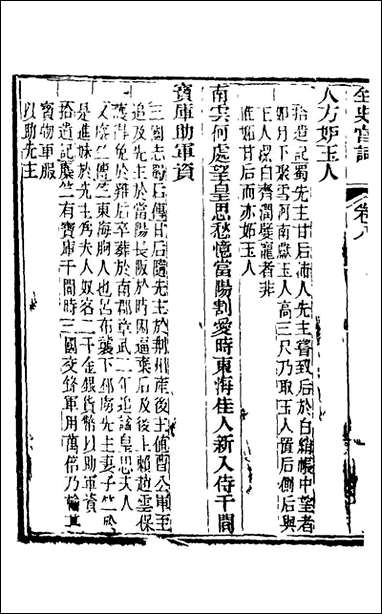 全史宮詞　卷八
人方妬玉人
拾遺記蜀先主甘后沛人先主召致后於白綃帳中望者
如月下聚雪河南獻玉人高三尺乃取玉人置后側后與
玉人潔白齊潤嬖寵者非
惟妬甘后而亦妬玉人
南雲何處望皇思愁憶當陽割愛時東海佳人新入侍千間
寶庫助軍資
三國志蜀后傳甘后隨先主於荆州產後主值曹公軍至
追及先主於當陽長阪於時困逼棄后及後主賴趙雲保
護得免於難后卒葬於南郡章武二年追諡皇思夫人
又麋竺傳竺東海朐人也呂布襲下邳虜先主妻子竺於
是進妹於先主為夫人奴客二千金銀貨幣以助軍資
拾遺記麋竺有寶庫千間時三國交鋒軍用萬倍乃輸其
寶物軍服
以助先主